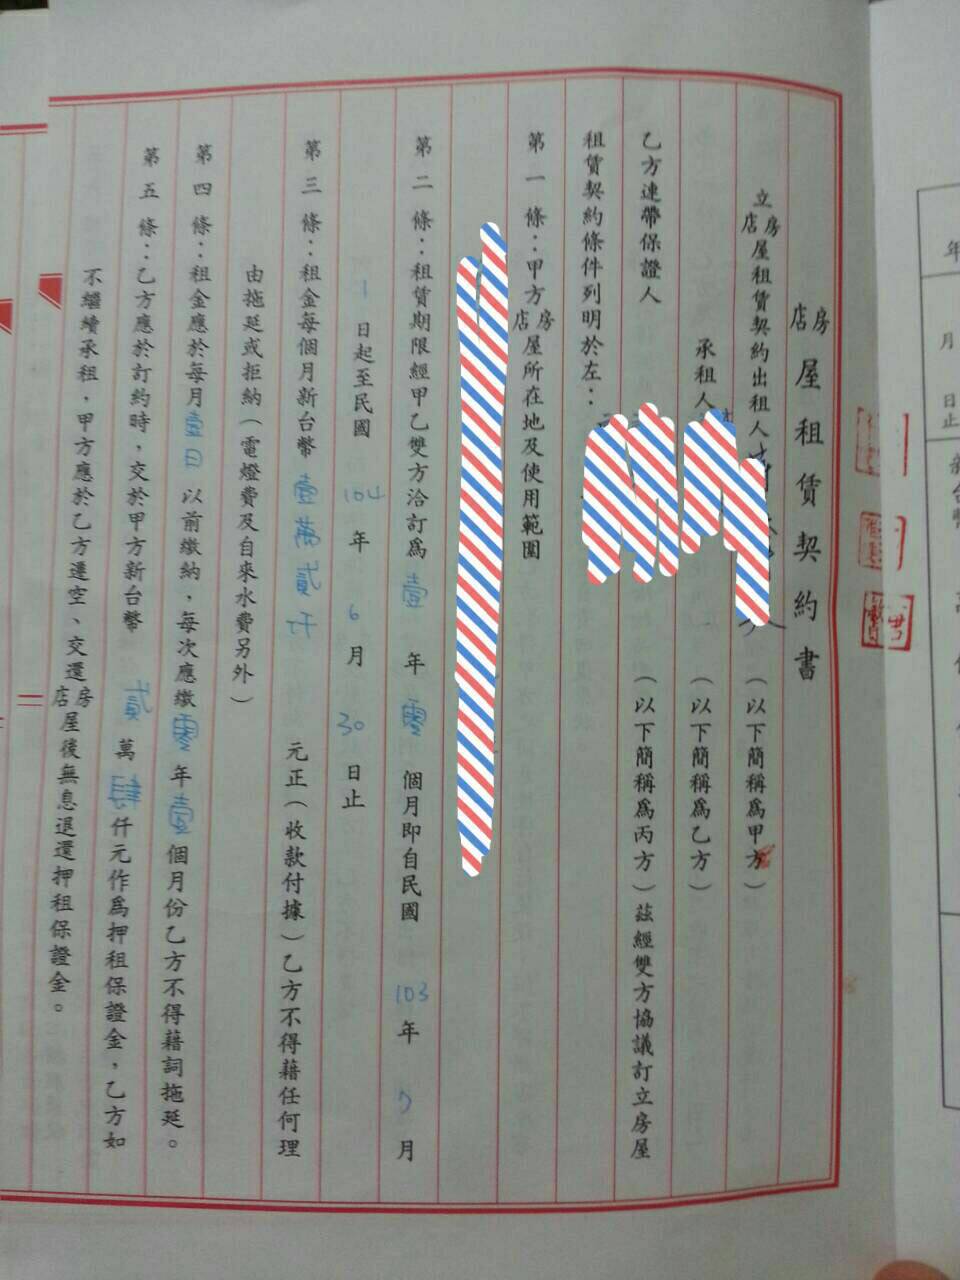 店房屋租賃契約書
立店房屋租賃契約出租人（以下簡稱為甲方）
承租人（以下簡稱為乙方）
乙方連帶保證人（以下簡稱為丙方）茲經雙方協議訂立房屋
租賃契約條件列明於左：
第一條：甲方店房屋所在地及使用範圍
第二條：租賃期限經甲乙雙方洽訂為壹年零個月即自民國103年7月
1日起至民國104年6月30日止
第三條：租金每個月新台幣壹萬貳仟元正（收款付據）乙方不得藉任何理
由拖延或拒納（電燈費及自來水費另外）
第四條：租金應於每月壹日以前繳納，每次應繳零年壹個月份乙方不得藉詞拖延。
第五條：乙方應於訂約時，交於甲方新台幣貳萬肆仟元作為押租保證金，乙方如
不繼續承租，甲方應於乙方遷空、交還店房屋後無息退還押租保證金。
年
月
日止
新台幣